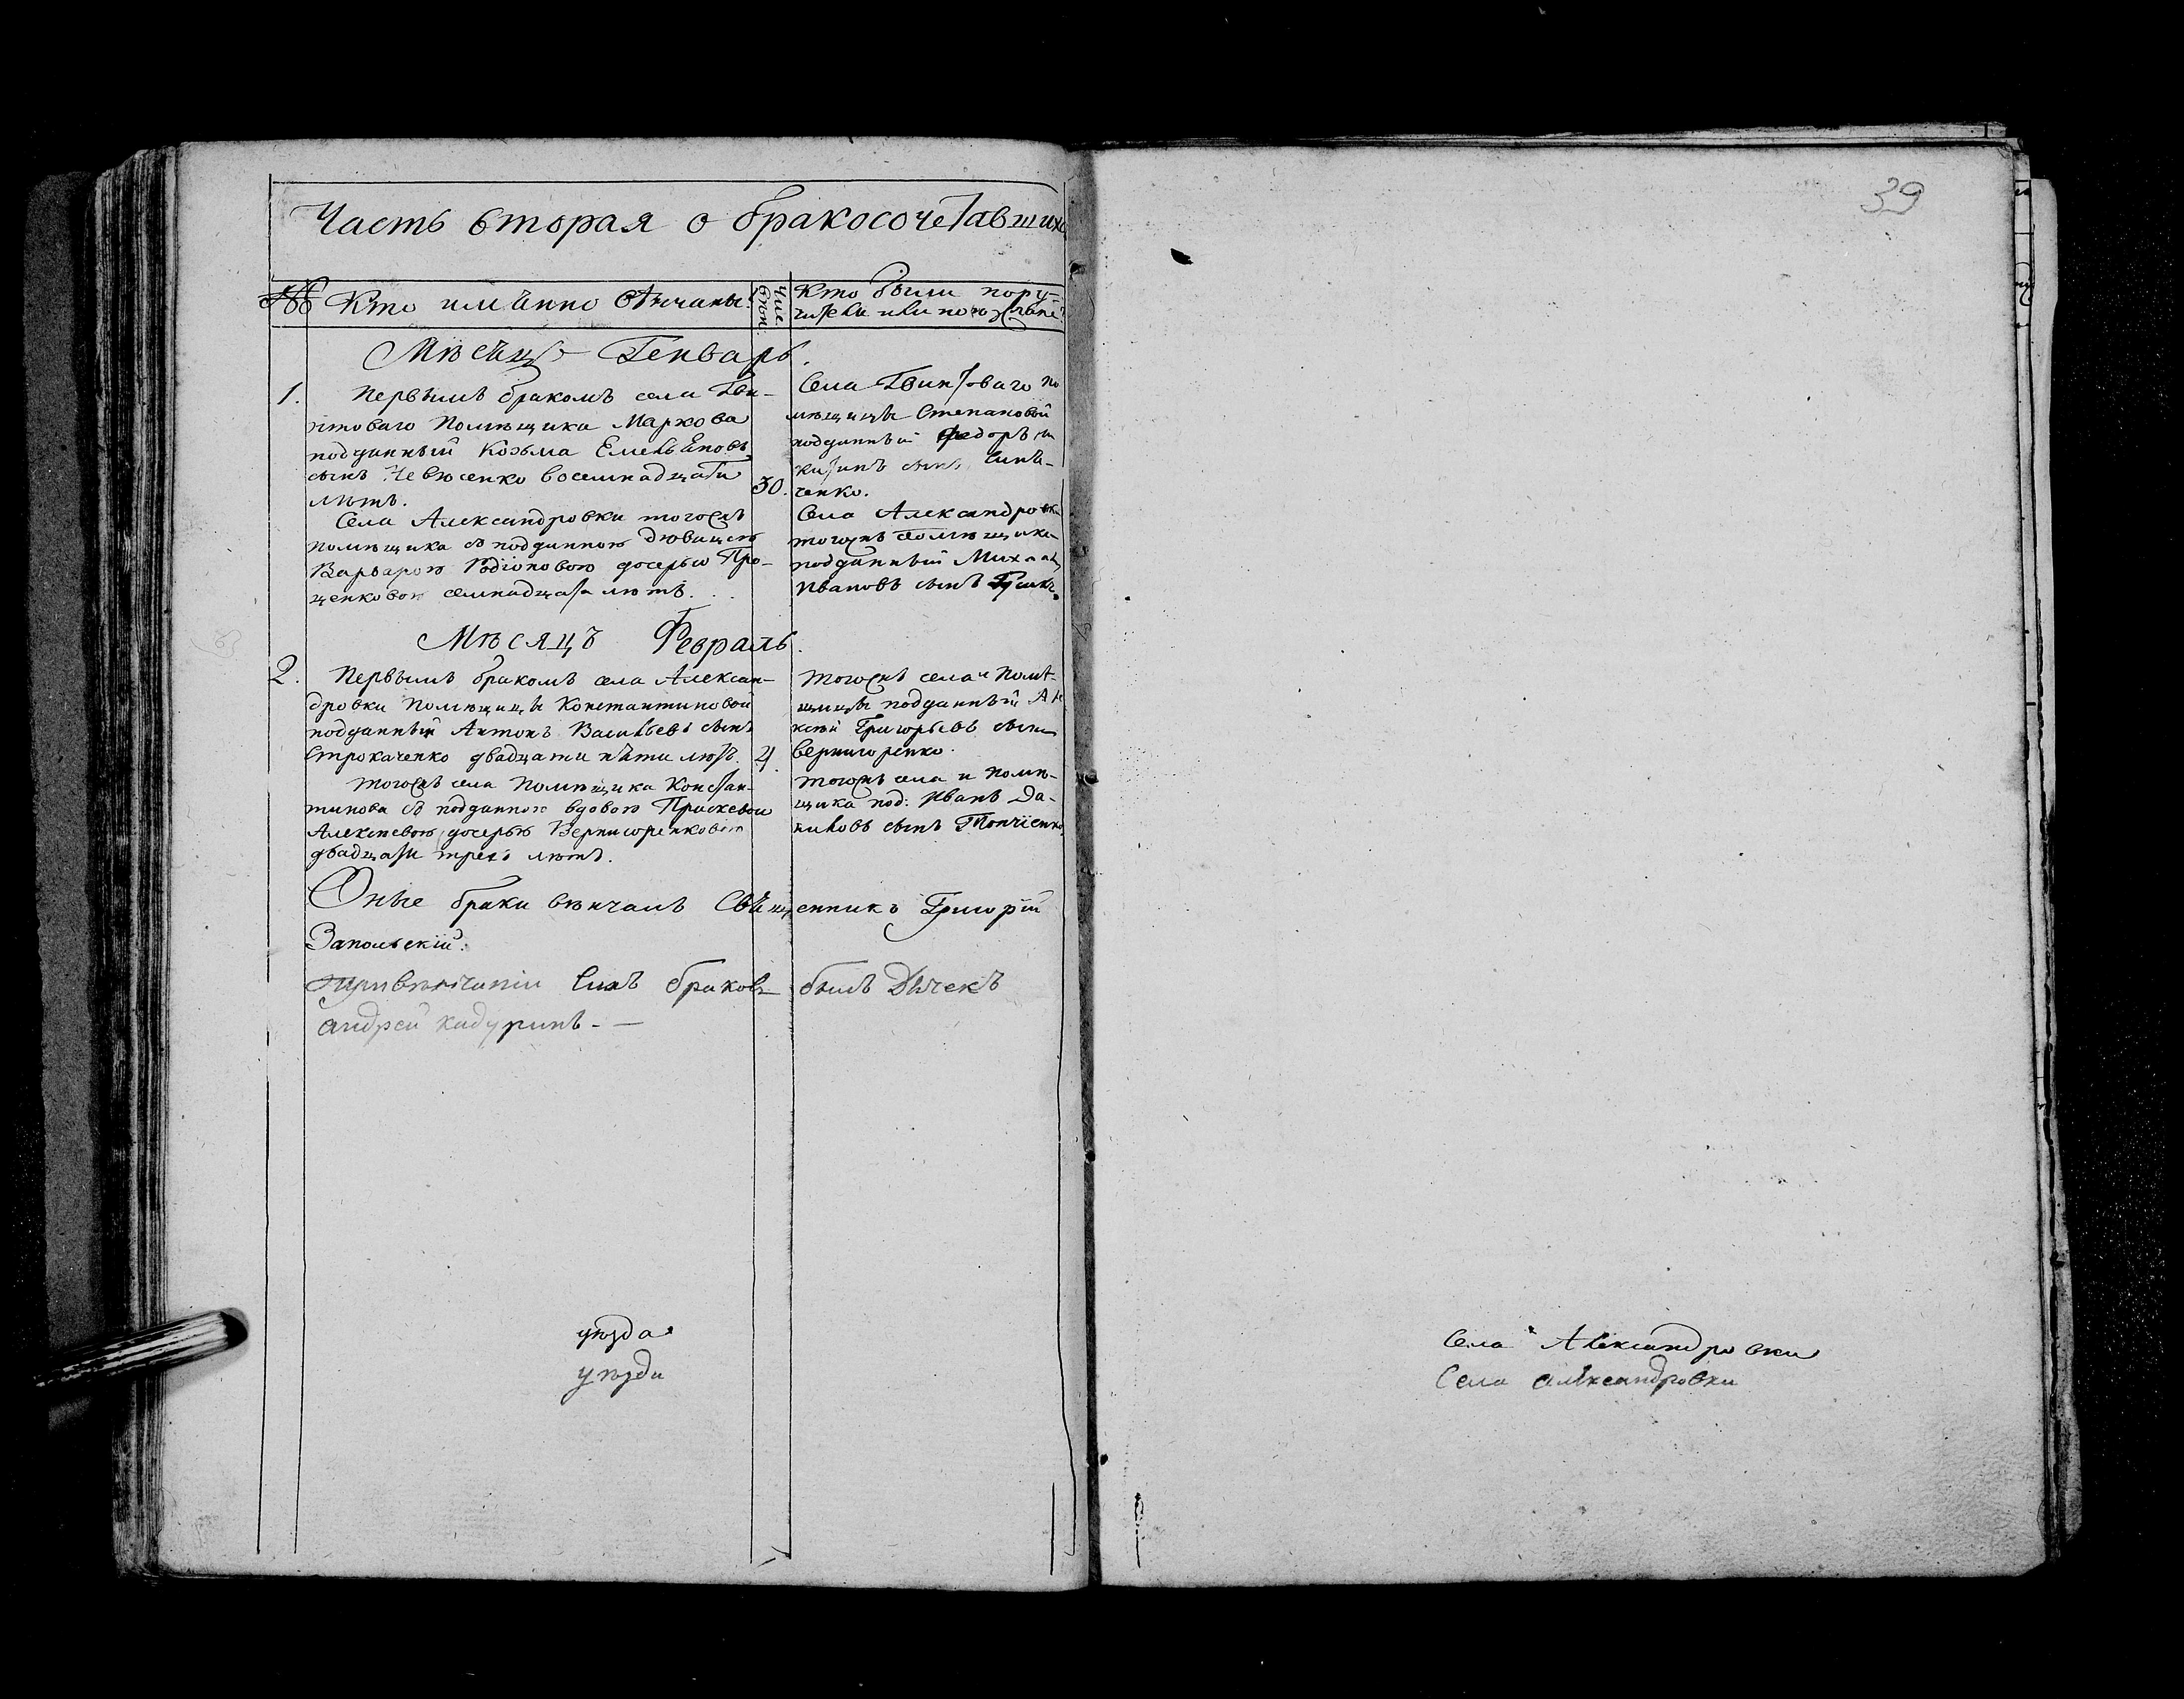 Часть вторая о бракосочетавшихс
№ Кто имянно вѣнчаны. Чис. Кто были пору-
чители или
Мѣсяцъ Генварь.
1. Первымъ бракомъ села Гви-
нтоваго Помѣщика Маркова
подданный Козьма Емельяновъ
сынъ восемнадцати
лѣтъ. 30.
Села Александровки тогожъ
помѣщика съ подданною дѣвицею
Варварою Родіоновою дочерью Про-
ценковою семнадцати лѣтъ.
Села Гвинтоваго по
мѣщицы Степановой
подданный Федоръ Ни
китинъ сынъ
ченко.
Села Александровки
тогожъ помѣщика
подданный Михаилъ
Ивановъ сынъ
Мѣсяцъ Февраль.
2. Первымъ бракомъ села Алексан-
дровки Помѣщицы Константиновой
подданный Антонъ Васильевъ сынъ
Строкаченко двадцати пяти лѣтъ. 4.
тогожъ села Помѣщика Констан-
тинова съ подданною вдовою Прискевою
Алексѣевою дочерью Вернигоренковою
двадцати трехъ лѣтъ.
тогожъ села и Помѣ-
щицы подданный Ал
ксѣй Григорьевъ сынъ
Вернигоренко.
тогожъ села и помѣ-
щика под: Иванъ Да-
ниловъ сынъ Топчіенко
Оные браки вѣнчалъ Священникъ Григорій
Запольскій.
При вѣнчаніи сихъ браковъ былъ Дьячекъ
андрей кадуринъ. —
уѣзда
уѣзда
39
Села Александровки
Села александровки